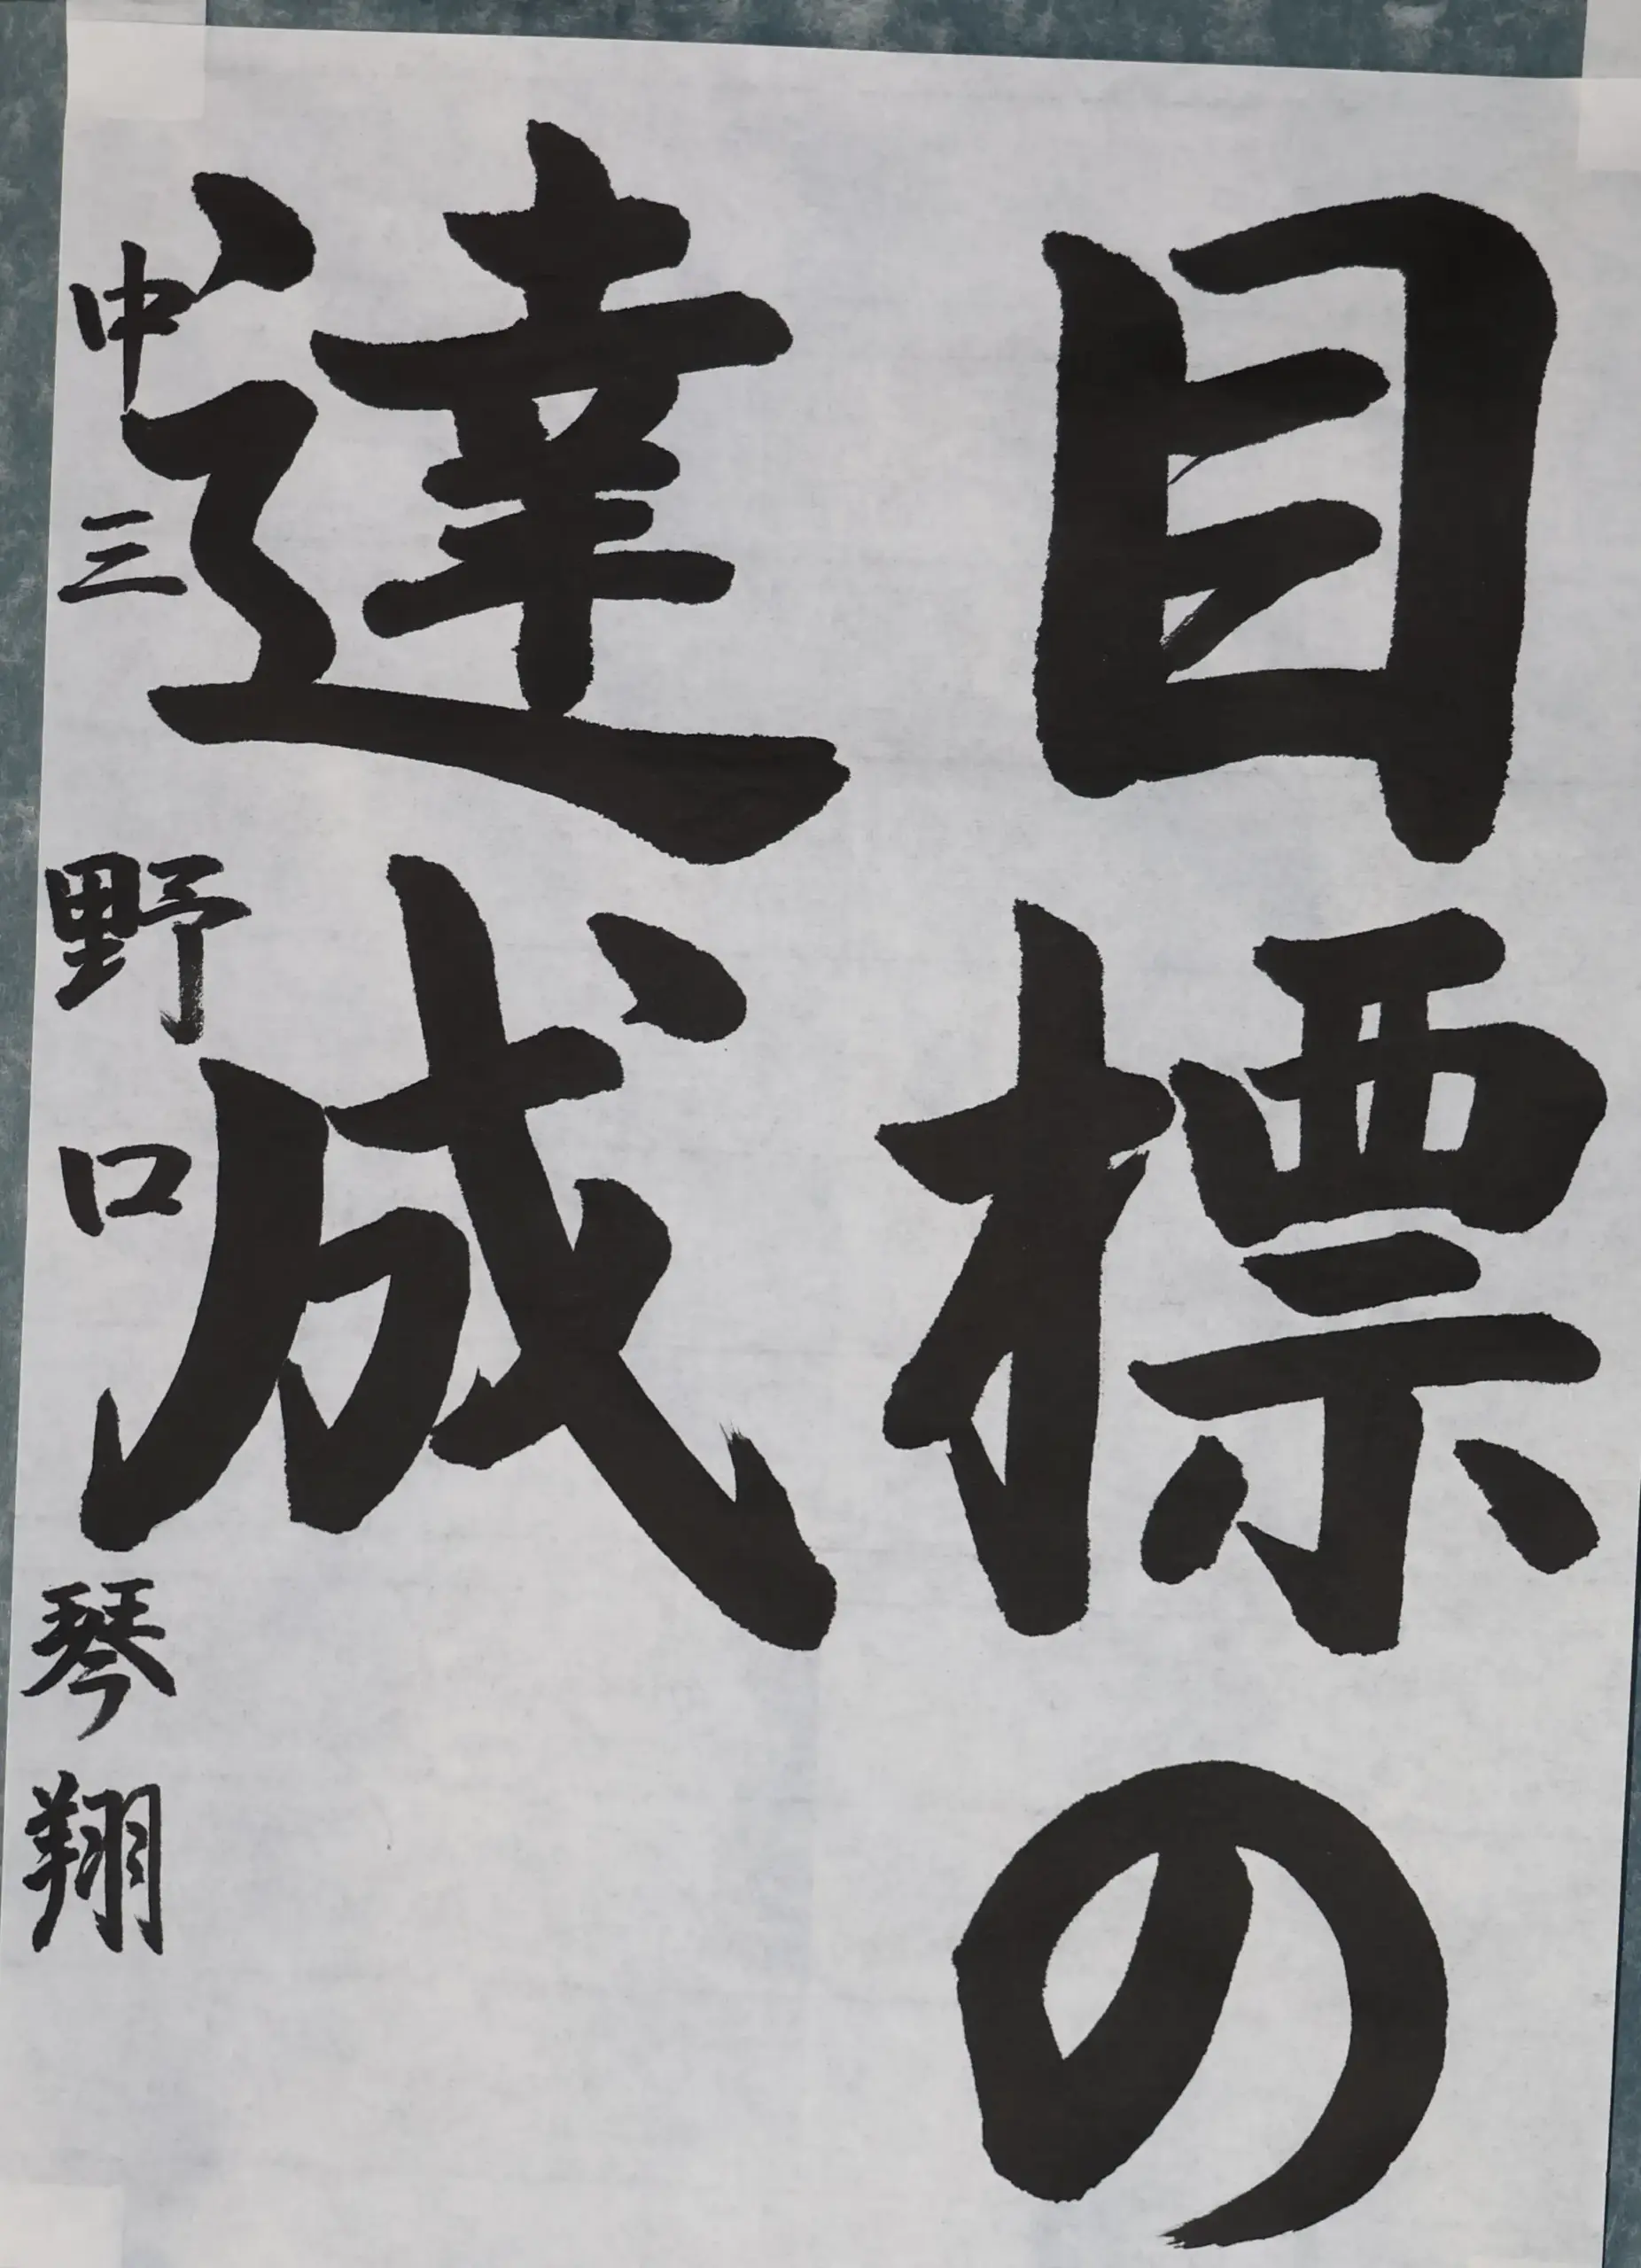 目標の
達成
中三 野口琴翔